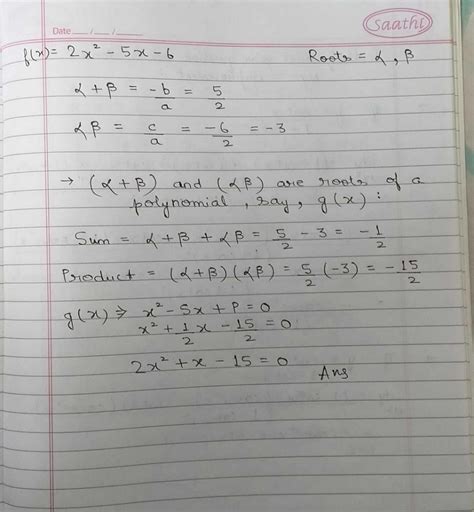 Saathi
Date ___/___/___
f(x) = 2x² - 5x - 6    Roots = α, β
α + β = -b/a = 5/2
αβ = c/a = -6/2 = -3
→ (α + β) and (αβ) are roots of a
polynomial, say, g(x) :
Sum = α + β + αβ = 5/2 - 3 = -1/2
Product = (α+β)(αβ) = 5/2 (-3) = -15/2
g(x) ⇒ x² - Sx + P = 0
x² + 1/2 x - 15/2 = 0
2x² + x - 15 = 0
Ans